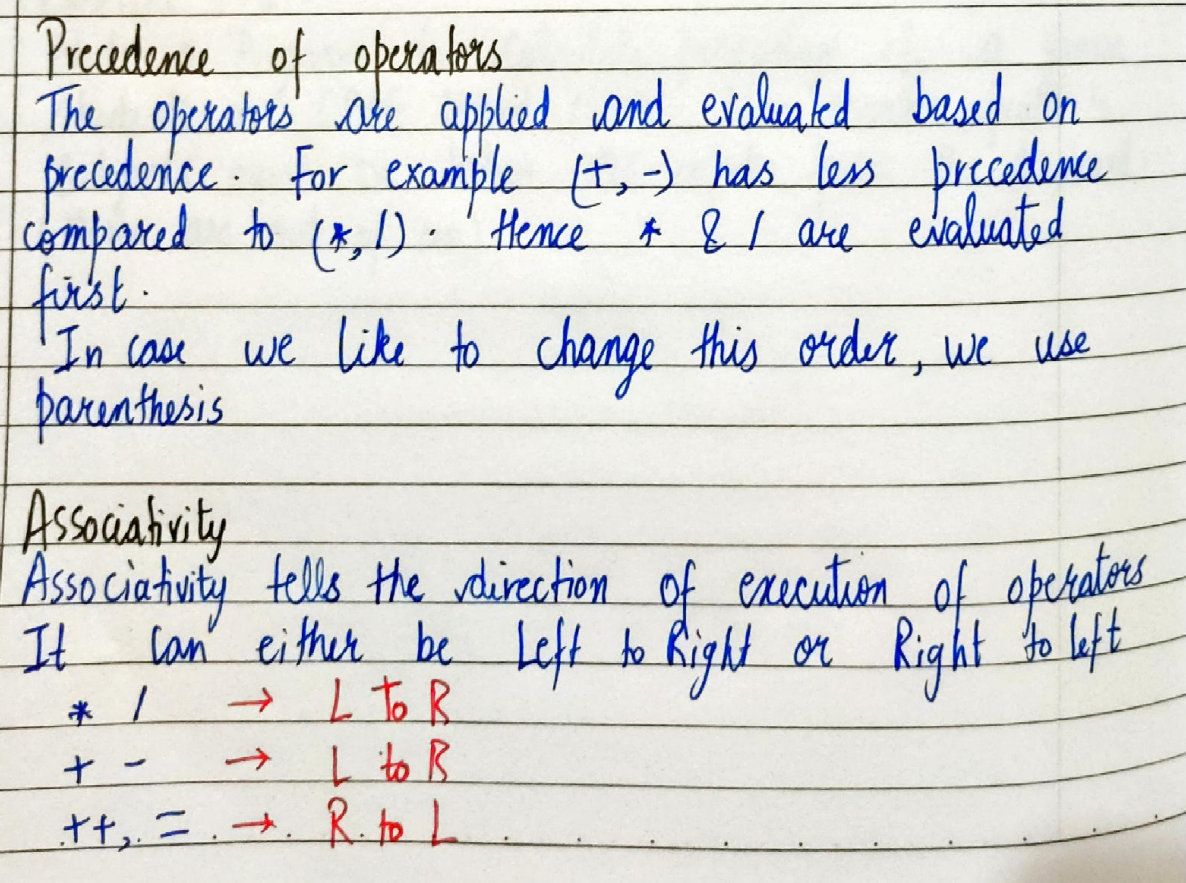 Precedence of operators
The operators are applied and evaluated based on
precedence. For example (+, -) has less precedence
compared to (*, /). Hence * & / are evaluated
first.
In case we like to change this order, we use
parenthesis
Associativity
Associativity tells the direction of execution of operators
It can either be Left to Right or Right to left
* / → L To R
+ - → L to R
++, = → R to L